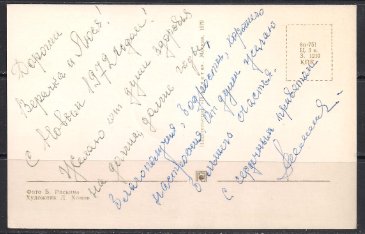 Дорогие
Верочка и Люся!
С Новым 1972 годом!
Желаю от души здоровья
на долгие, долгие годы,
благополучия, бодрости, хорошего
настроения. От души желаю
большого счастья.
С сердечным приветом
Фото Б. Раскина
Художник Л. Хонов